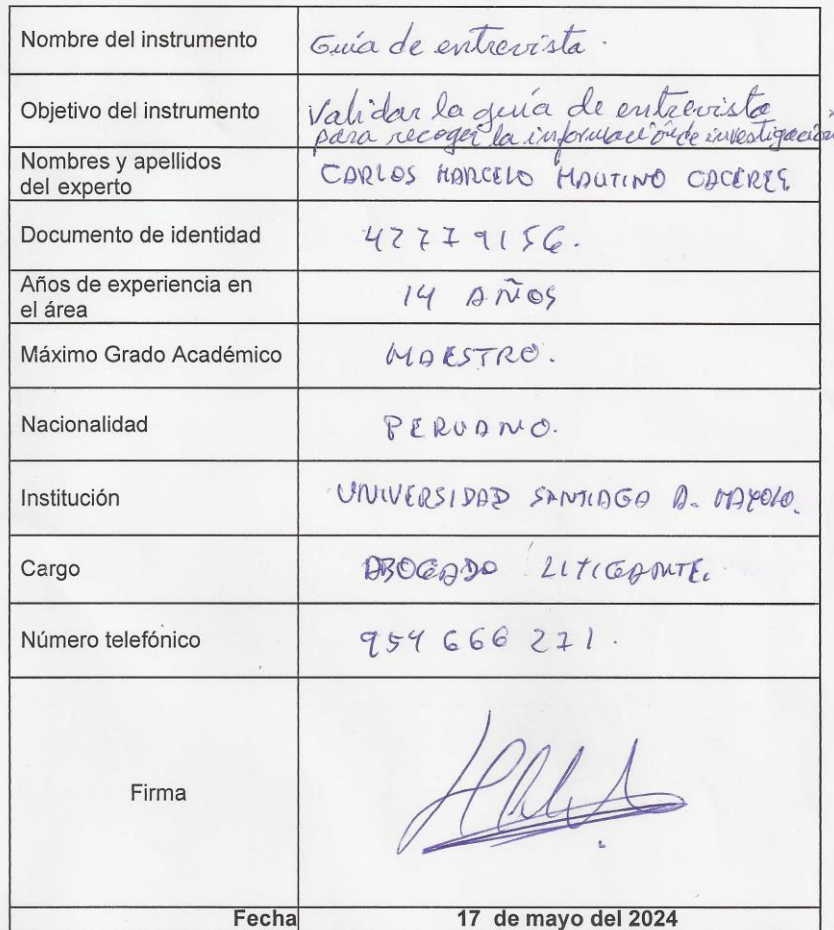 Nombre del instrumento
Guía de entrevista.
Objetivo del instrumento
Validar la guía de entrevista
para recoger la información de investigación
Nombres y apellidos
del experto
CARLOS MARCELO MAUTINO CACERES
Documento de identidad
42779156.
Años de experiencia en
el área
14 AÑOS
Máximo Grado Académico
MAESTRO.
Nacionalidad
PERUANO.
Institución
UNIVERSIDAD SANTIAGO A. MAYOLO.
Cargo
ABOGADO LITIGANTE.
Número telefónico
954 666 271.
Firma
Fecha
17 de mayo del 2024